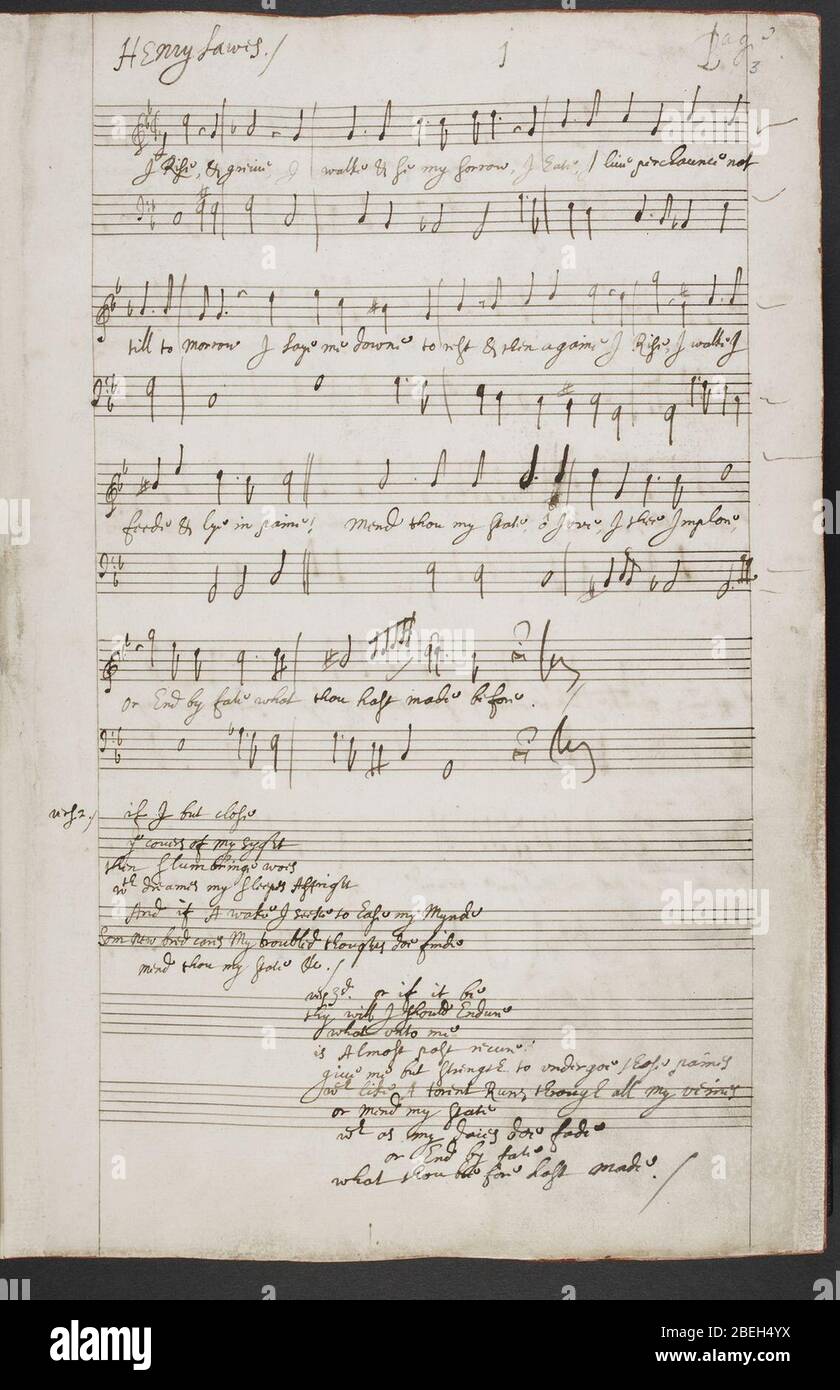 Henry Lawes. /
1
Page 3
I Rise, & grieve, I walke & se my sorrow, I Eate, I live perchaunce not
till to Morrow I laye me downe to rest & then againe I Rise, I walke I
feede & lye in paine! Mend thou my state, ô Jove, I thee Implore,
or End by fate what thou hast made before.
vers. 2. /
if I but close
ye covers of my syght
then slumbringe woes
wth dreames my sleepes Affright
And if A wake I seeke to Ease my Mynde
Som new bred cares My troubled thoughts doe finde
mend thou my state &c. /
vers 3d. or if it be
thy will I should Endure
what unto me
is Almost past recure!
give me but strength to undergoe these paines
wch like A torent Runs through all my veines
or mend my state
wch as my daies doe fade
or End by fate
what thou be fore hast made. /
alamy
Image ID: 2BEH4YX
www.alamy.com